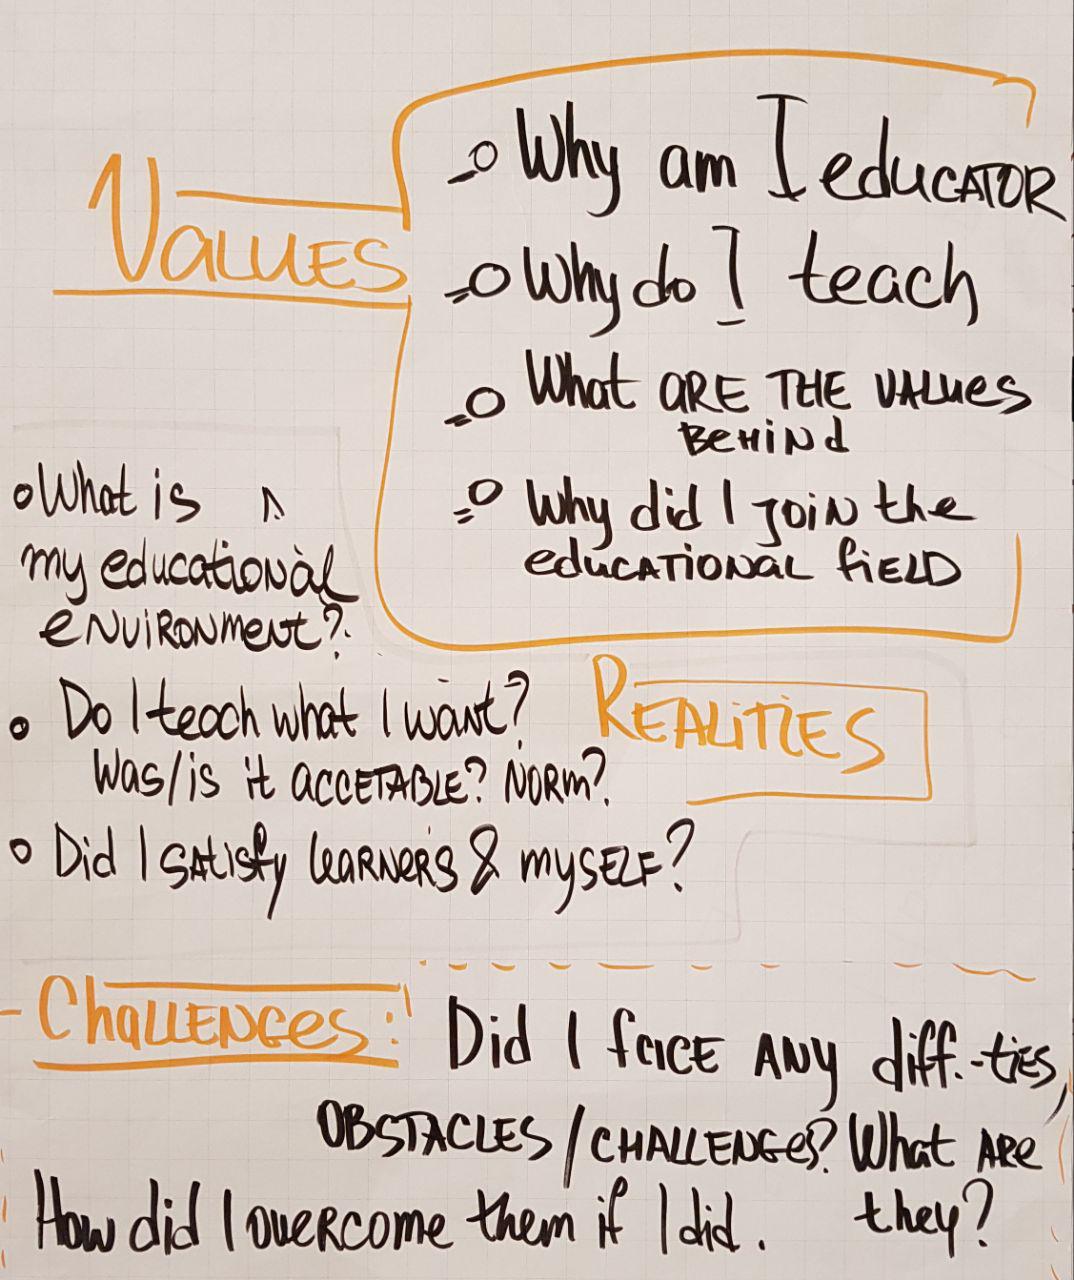 Values
Why am I educator
Why do I teach
What are the values
behind
Why did I join the
educational field
What is
my educational
environment?
Realities
Do I teach what I want?
Was/is it accetable? Norm?
Did I satisfy learners & myself?
Challenges:
Did I face any diff.-ties,
obstacles/challenges? What are
they?
How did I overcome them if I did.